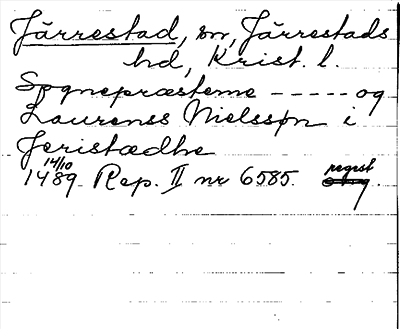 Järrestad, sn, Järrestads
hd, Krist. l.
Sognepræsterne ----- og
Laurenss Nielssøn i
Jeristædhe
14/10
1489 Rep. II nr 6585. regest